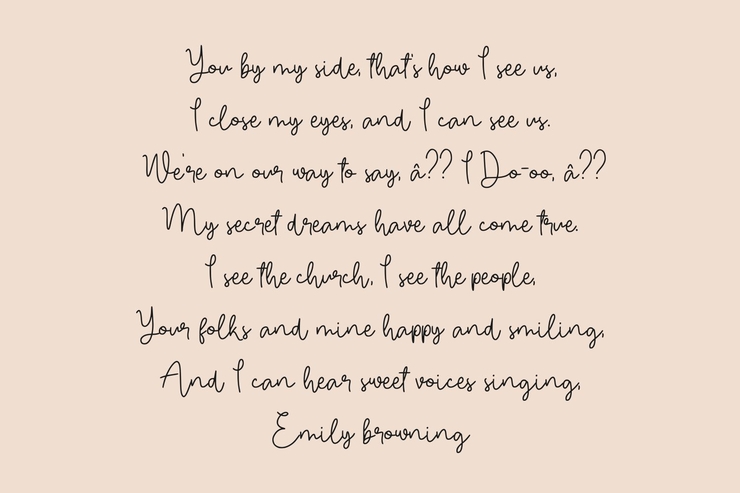 You by my side, that's how I see us,
I close my eyes, and I can see us.
We're on our way to say, â?? I Do-oo, â??
My secret dreams have all come true.
I see the church, I see the people,
Your folks and mine happy and smiling,
And I can hear sweet voices singing,
Emily browning